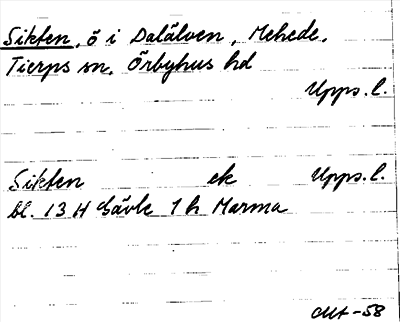 Sikten, ö i Dalälven, Mehede,
Tierps sn, Örbyhus hd
Upps. l.
Sikten ek Upps. l.
bl. 13 H Gävle 1 h Marma
-58